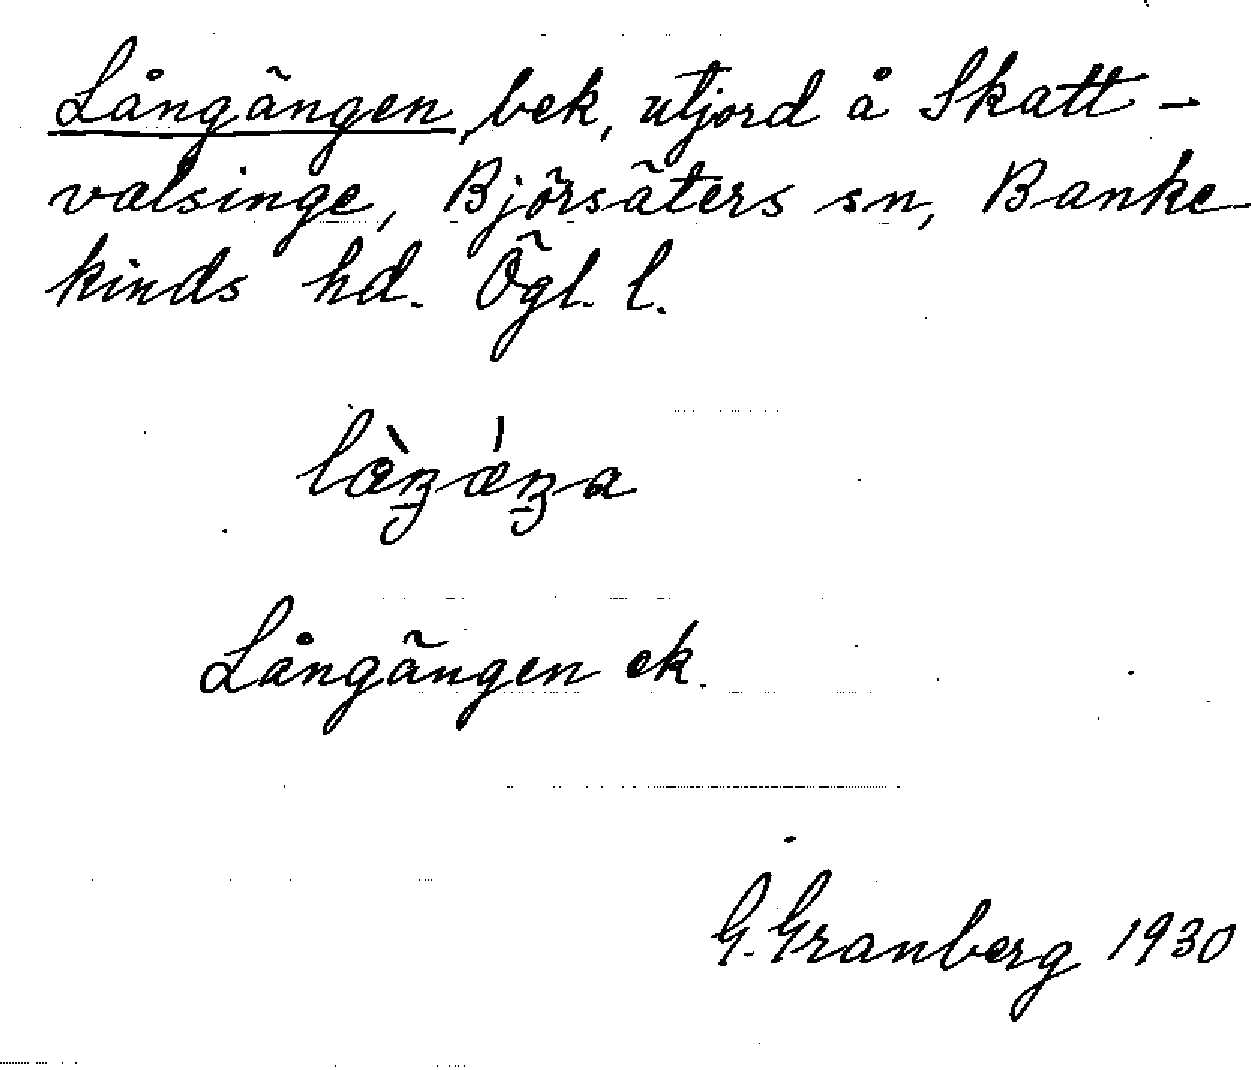 Långängen, bek, utjord å Skatt-
valsinge, Björsäters sn, Banke
kinds hd. Ögl. l.
Långängen ek.
G. Granberg 1930